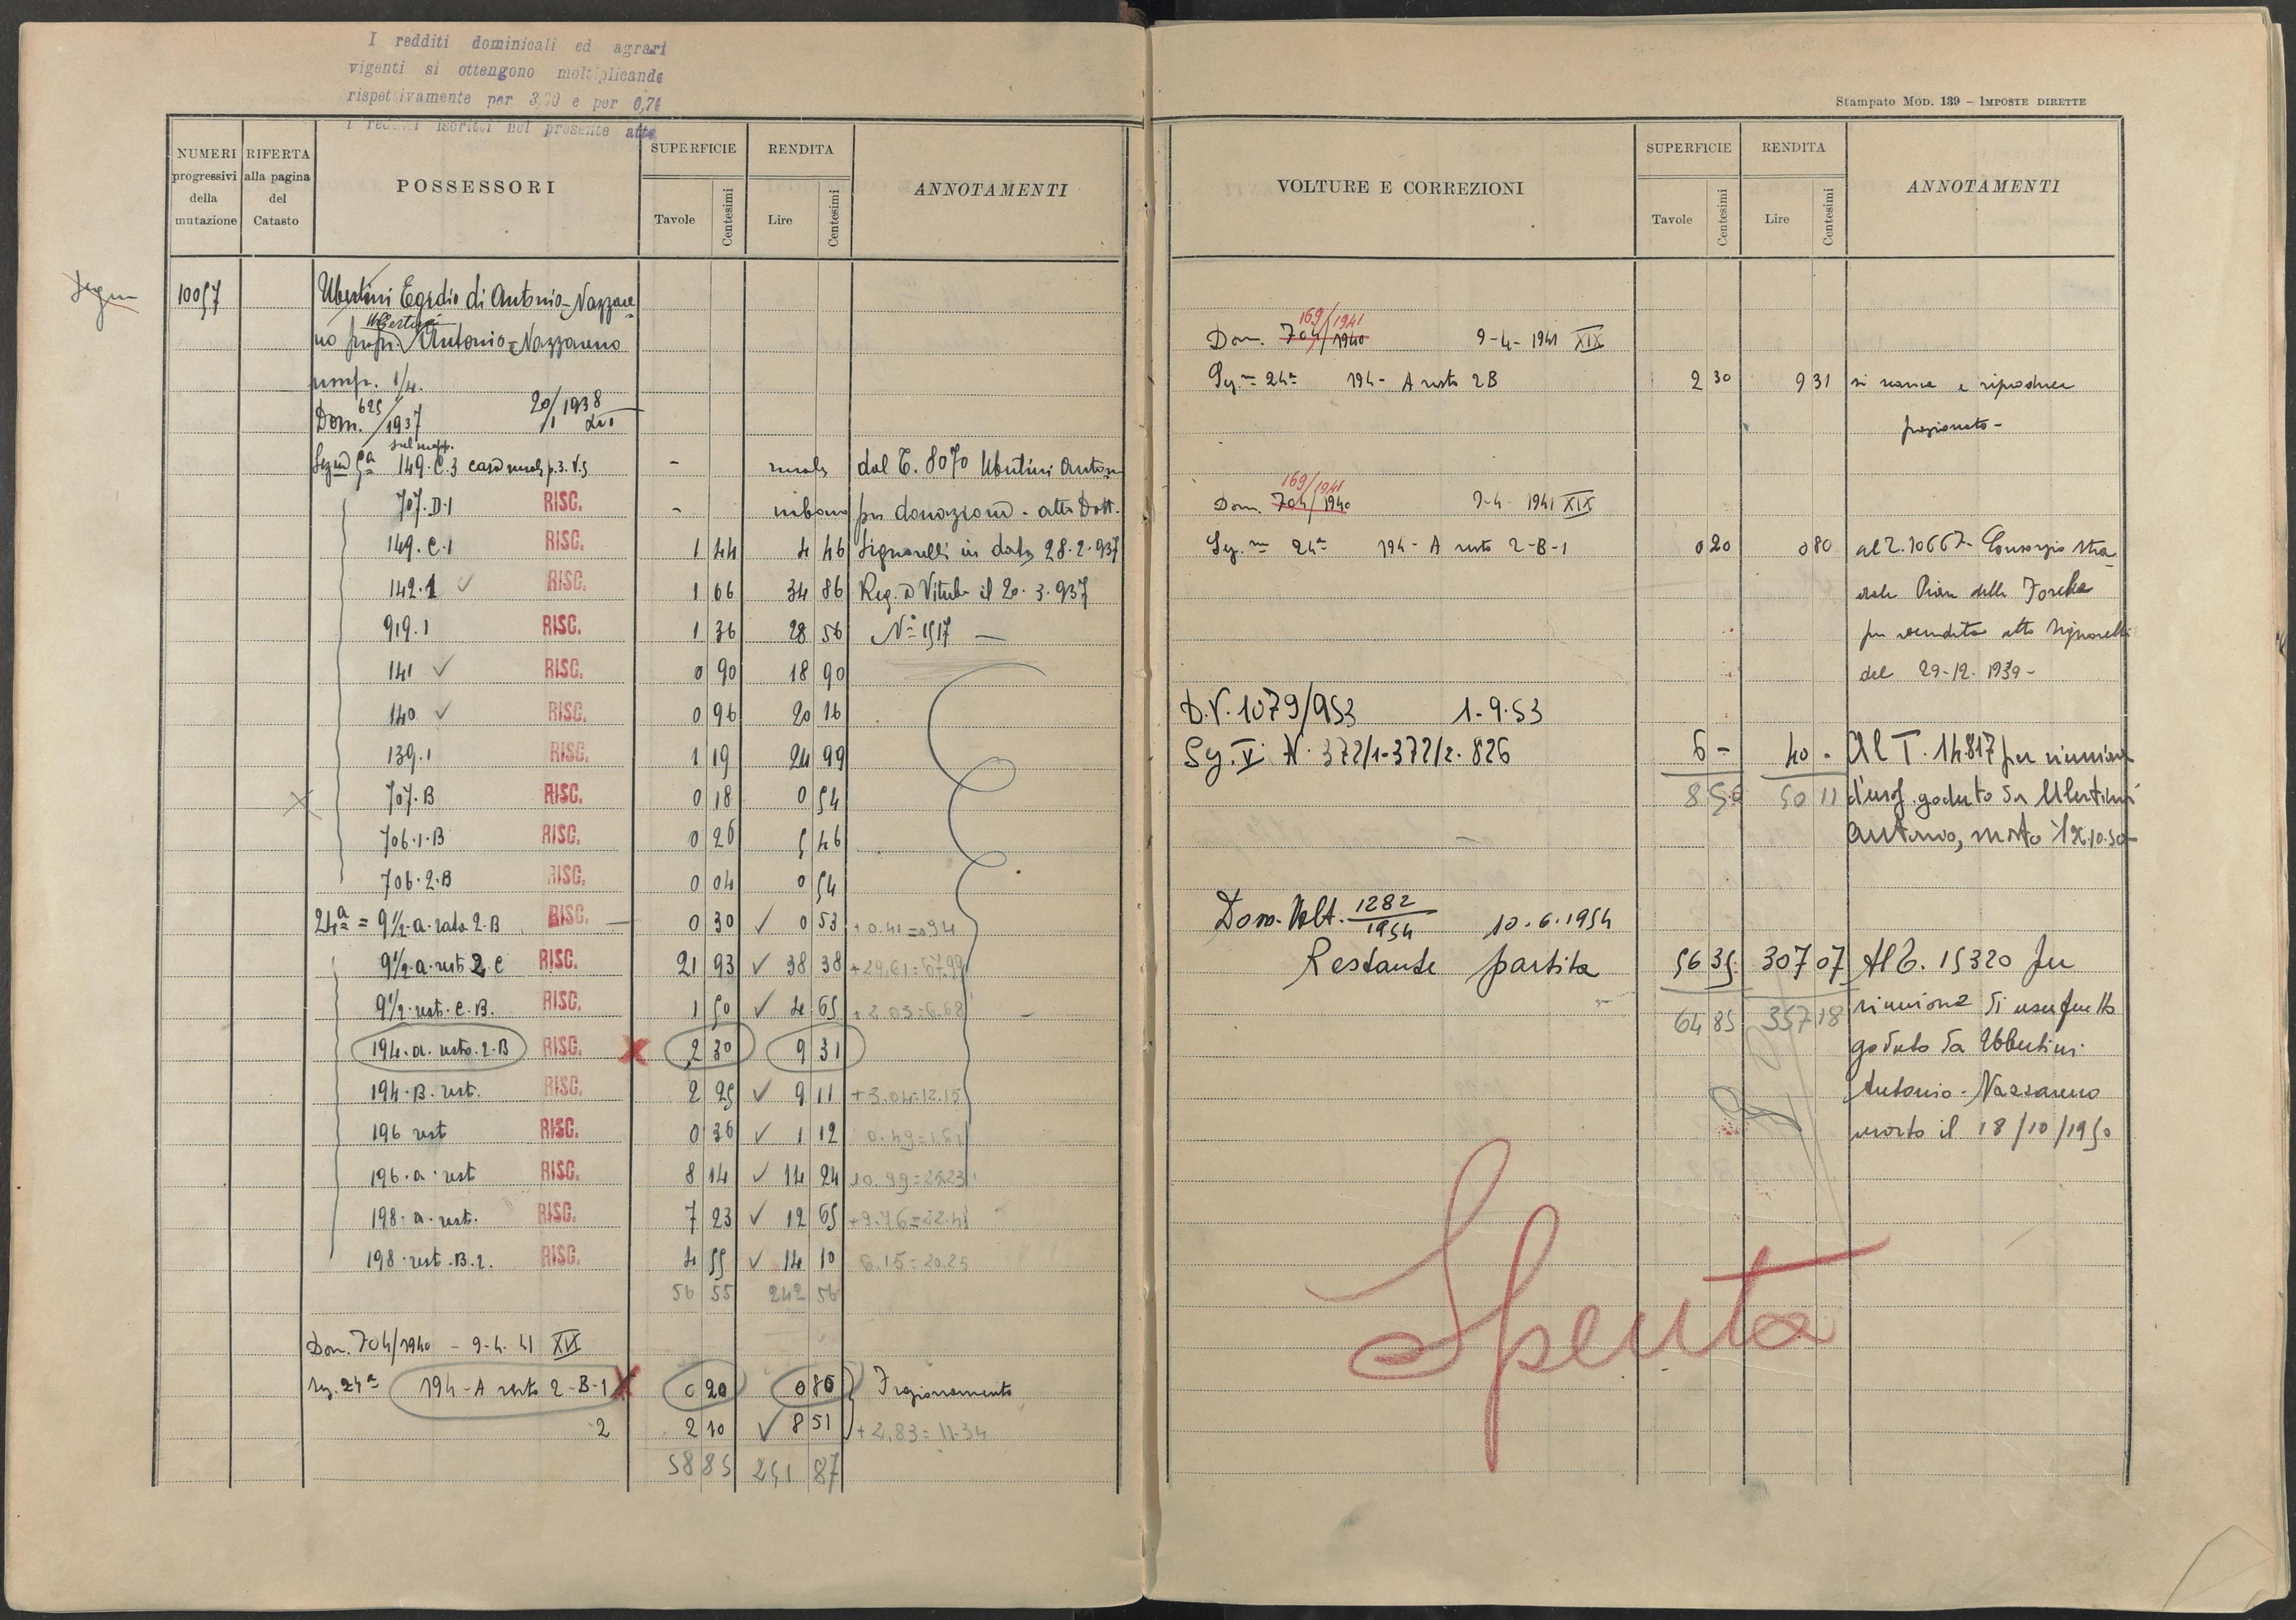 I redditi dominicali ed agrari
vigenti si ottengono moltiplicando
rispettivamente per 3,00 e per 0,7
i redditi iscritti nel presente atto
NUMERI progressivi della mutazione
RIFERTA alla pagina del Catasto
POSSESSORI
SUPERFICIE
Tavole Centesimi
RENDITA
Lire Centesimi
ANNOTAMENTI
10057 Ubertini Egidio di Antonio-Nazzare
no propr. Ubertini Antonio-Nazzareno
usufr. 1/4.
Dom. 625/1937 20/1 1938 XVI
Sezne 5a 149.C.3 sul mapp. casa rurale p.3.V.5 - rurale dal T. 8070 Ubertini Anton
707.D.1 RISC. - urbano per donazione - atto Dott.
149.C.1 RISC. 1 44 4 46 Signorelli in data 28.2.937
142.1 ✓ RISC. 1 66 34 86 Reg. a Viterbo il 20.3.937
919.1 RISC. 1 36 28 56 N° 1517 —
141 ✓ RISC. 0 90 18 90
140 ✓ RISC. 0 96 20 16
139.1 RISC. 1 19 24 99
707.B RISC. 0 18 0 54
706.1.B RISC. 0 26 5 46
706.2.B RISC. 0 04 0 54
24a = 9½.a.rata 2.B RISC. 0 30 ✓ 0 53 +0.41=0.94
9½.a.rest 2.C RISC. 21 93 ✓ 38 38 +29.61=67.99
9½.rest.C.B. RISC. 1 50 ✓ 4 65 +2.03=6.68
194.a.resto.2.B RISC. X 2 30 9 31
194.B.rest. RISC. 2 25 ✓ 9 11 +3.04=12.15
196 rest RISC. 0 36 ✓ 1 12 0.49=1.61
196.a.rest RISC. 8 14 ✓ 14 24 10.99=25.23
198.a.rest. RISC. 7 23 ✓ 12 65 +9.76=22.41
198.rest.B.2. RISC. 4 55 ✓ 14 10 6.15=20.25
56 55 242 56
Dom. 704/1940 - 9-4-41 XIX
Sez. 24a 194-A resto 2-B-1 X 0 20 0 80 Frazionamento
2 2 10 ✓ 8 51 +2.83=11.34
58 85 251 87
Stampato MOD. 139 – IMPOSTE DIRETTE
VOLTURE E CORREZIONI
SUPERFICIE
Tavole Centesimi
RENDITA
Lire Centesimi
ANNOTAMENTI
169/1941
Dom. 704/1940 9-4-1941 XIX
Sez.ne 24a 194-A resto 2B 2 30 9 31 si scarica e riproduce
frazionato -
169/1941
Dom. 704/1940 9-4-1941 XIX
Sez.ne 24a 194-A resto 2-B-1 0 20 0 80 al T. 10667- Consorzio stra
dale Piano delle Forche
per vendita atto Signorelli
del 29-12-1939-
D.V. 1079/953 1.9.53
Sez. V. N. 372/1-372/2.826 6 - 40 - Al T. 14817 per riunione
8 50 50 11 d'usuf. goduto da Ubertini
Antonio, morto
Dom. Volt. 1282/1954 10.6.1954
Restante partita 56 35 307 07 Al T. 15320 per
64 85 357 18 riunione di usufrutto
goduto da Ubertini
Antonio-Nazzareno
morto il 18/10/1950
Spenta